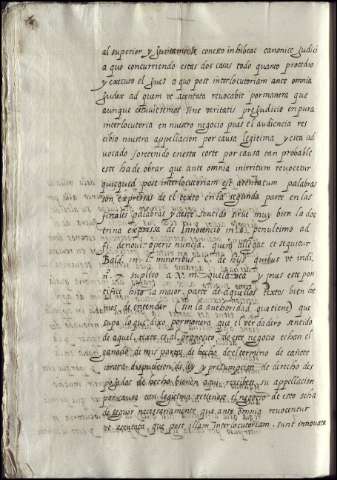 al superior y juntamente conexo inhibeat canonice judici
a quo concurriendo estas dos cosas todo quanto procedio
y executo el juez a quo post interlocutoriam ante omnia
judex ad quem ut atentata revocabit por manera que
aunque estuviesemos sine veritatis prejudicio en pura
interlocutoria en nuestro negocio pues el audiencia res
cibio nuestra appellacion por causa legitima y esta ad
vocado y retenido en esta corte por causa tan probable
este ha de obrar que ante omnia irritum revocetur
quicquid post interlocutoriam est atentatum palabras
son expresas de el texto en la segunda parte en las
finales palabras y deste sentido prueva muy bien la doc
trina expressa de Innocencio in penultimo ad
fi. de novi operis nunciat. quam allegat et sequitur
Bald. in l. minoribus de his quibus ut indi.
suplico a V. m. y pues este pon
tifice hizo la mayor parte de aquellos textos bien he
mos de entender (sin la autoridad que tiene) que
supo lo que dixo por manera que el verdadero sentido
de aquel texto es al proposito de este negocio echan el
de mis partes de hecho de el termino de cañete
contra disposicion de ley y presumpcion de derecho des
pojadas de hecho vienen aqui resciben su appellacion
por causa tan legitima retienese el negocio de esto se ha
de seguir necesariamente que ante omnia revocentur
ut atentata, que post illam interlocutoriam sunt innovata